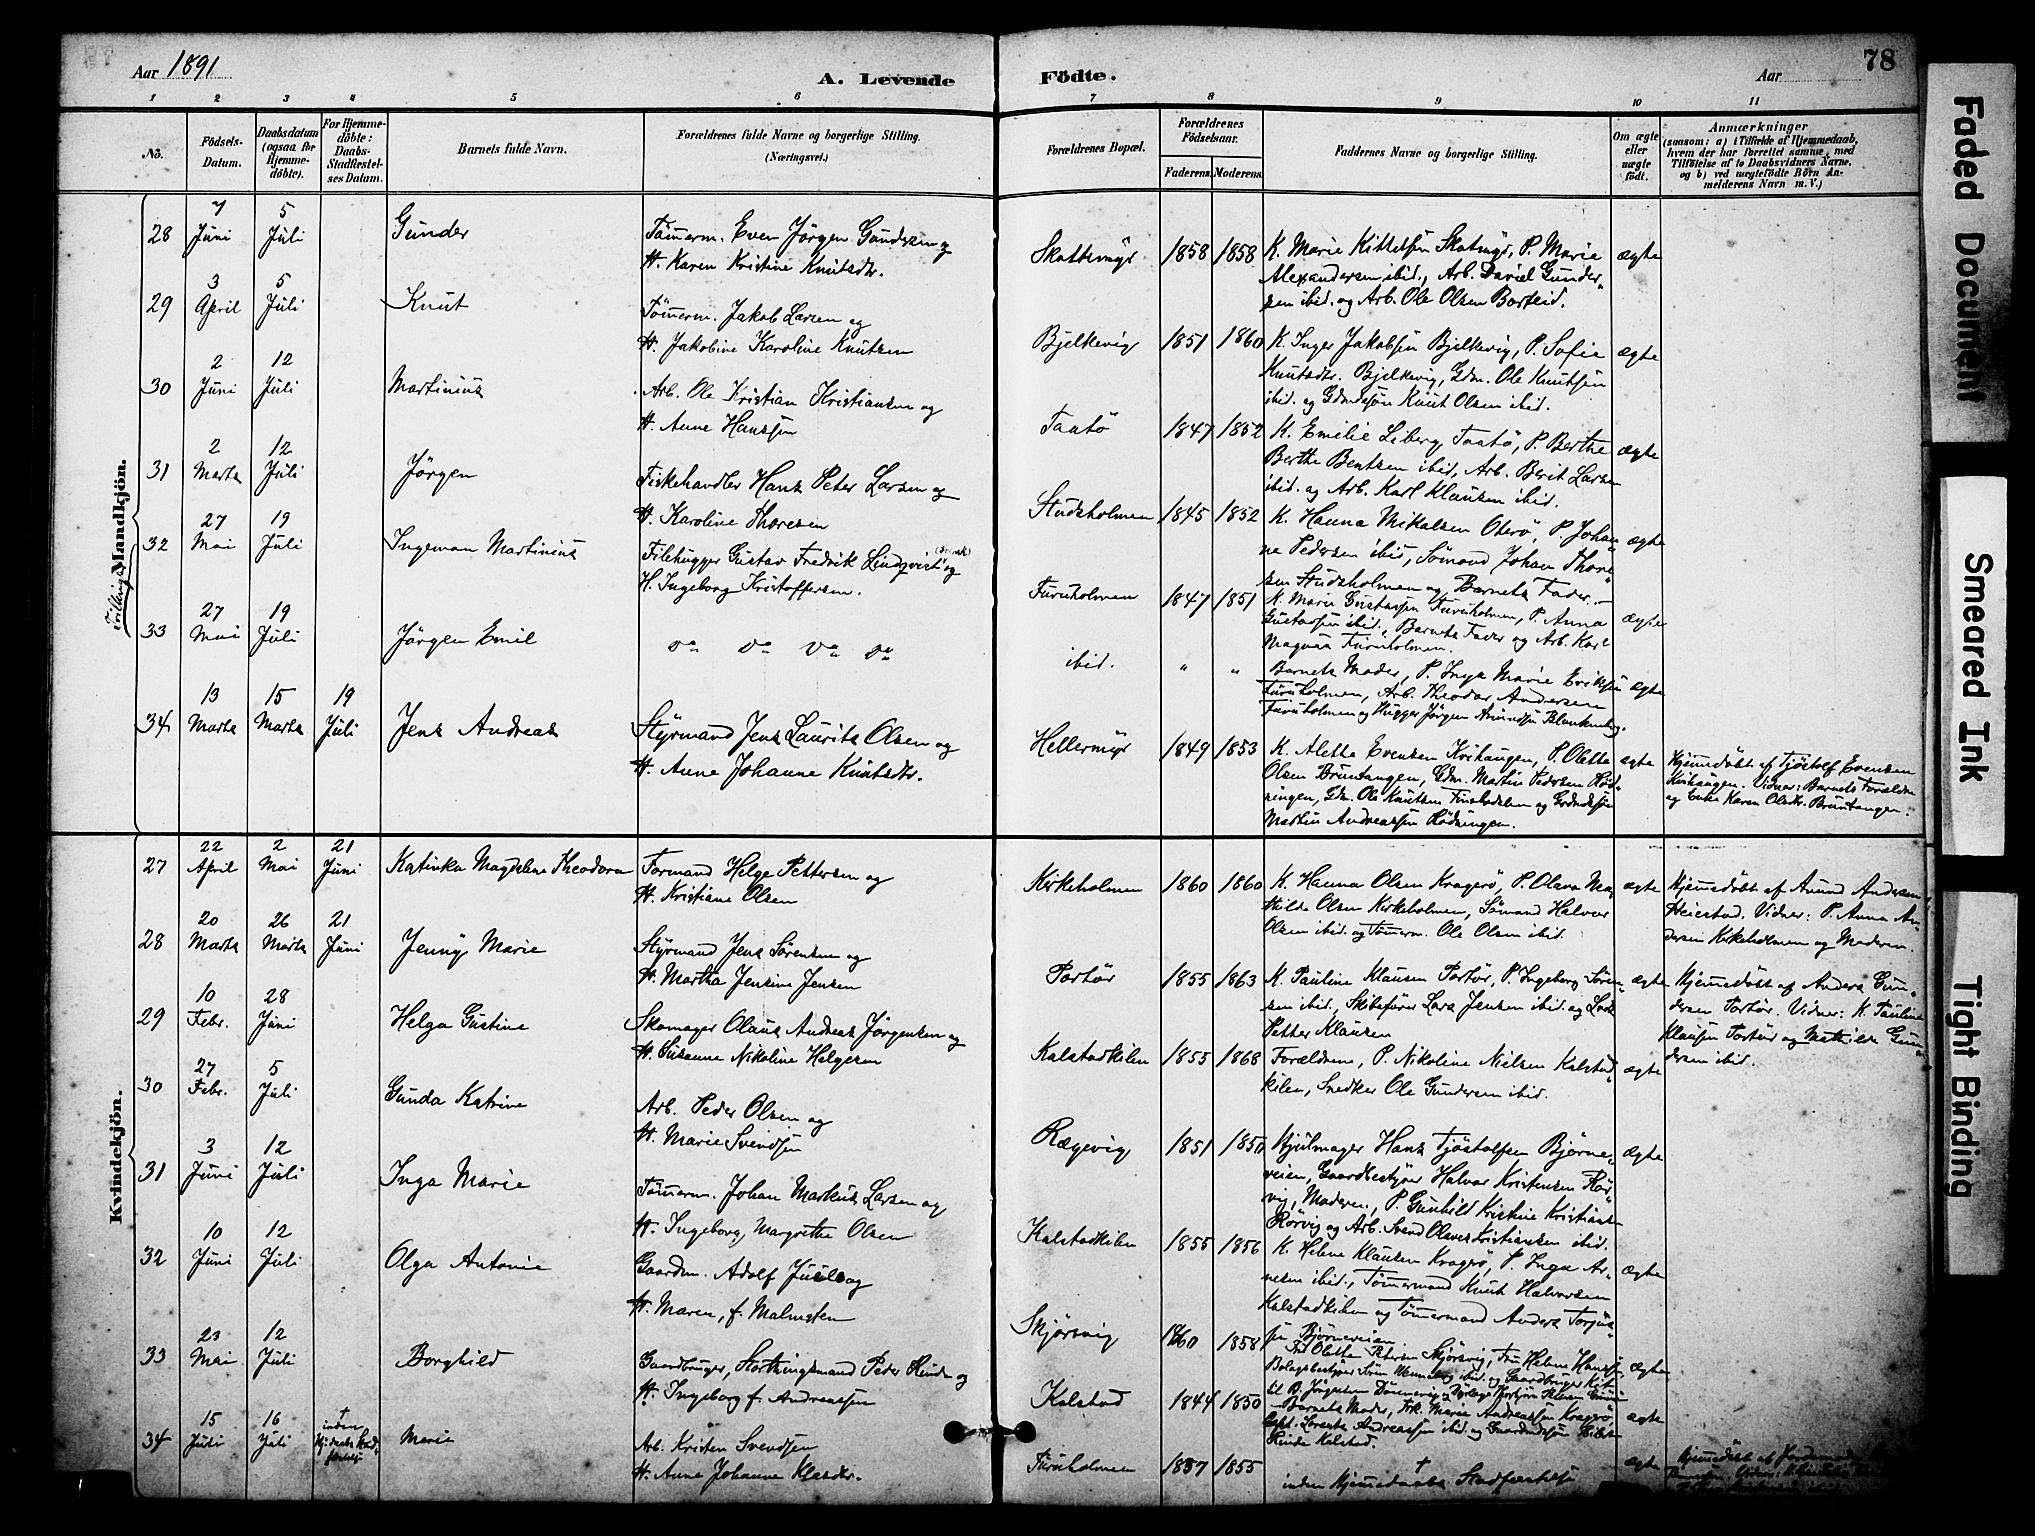 Aar 1891
A. Levende Födte.
Aar
78
1 2 3 4 5 6 7 8 9 10 11
No.
Födsels-
Datum.
Daabsdatum
(ogsaa for
Hjemme-
döbte).
For Hjemme-
döbte:
Daabs-
Stadfæstel-
ses Datum.
Barnets fulde Navn.
Forældrenes fulde Navne og borgerlige Stilling.
(Næringsvei.)
Forældrenes Bopæl.
Forældrenes
Födselsaar.
Faderens. Moderens.
Faddernes Navne og borgerlige Stilling.
Om ægte
eller
uægte
födt.
Anmærkninger
(saasom: a) i Tilfælde af Hjemmedaab,
hvem der har forrettet samme, med
Tilföielse af to Daabsvidners Navne,
og b) ved uægtefödte Börn An-
melderens Navn m. V.)
Mandkjön.
28 7 Juni 5 Juli Gunder
Tömerm. Even Jörgen Gundersen og
H. Karen Kristine Knutsdtr.
Skottemyr 1858 1858
K. Marie Kittelsen Skotmyr, P. Marie
Alexandersen ibid., Arb. Daniel Gunder-
sen ibid. og Arb. Ole Olsen Borteid.
ægte
29 3 April 5 Juli Knut
Tömerm. Jakob Larsen og
H. Jakobine Karoline Knutsen
Bjelkevig 1851 1860
K. Inger Jakobsen Bjelkevig, P. Sofie
Knutsdtr. Bjelkevig, Gdm. Ole Knutsen
ibid. og Gdmdssön Knut Olsen ibid.
ægte
30 2 Juni 12 Juli Martinius
Arb. Ole Kristian Kristiansen og
H. Anne Hanssen
Taatö 1847 1852
K. Emilie Liberg Taatö, P. Berthe
Berthe Bentsen ibid, Arb. Berit Larsen
ibid. og Arb. Karl Klausen ibid.
ægte
31 2 Marts 12 Juli Jörgen
Fiskehandler Hans Peter Larsen og
H. Karoline Thoresen
Studsholmen 1845 1852
K. Hanna Mikalsen Oterö, P. Johan-
ne Pedersen ibid, Sömand Johan Thore-
sen Studsholmen og Barnets Fader.
ægte
Tvilling
32 27 Mai 19 Juli Ingeman Martinius
Filehugger Gustav Fredrik Lindqvist og
H. Ingeborg Kristoffersen.
Furuholmen 1847 1851
K. Marie Gustavsen Furuholmen, P. Anna
Gustavsen ibid., Barnets Fader og Arb. Karl
Magnus Furuholmen.
ægte
33 27 Mai 19 Juli Jörgen Emil
do do do do
ibid. " "
Barnets Moder, P. Inga Marie Eriksen
Furuholmen, Arb. Theodor Andersen
Furuholmen og Hugger Jörgen Amundsen Blankenberg.
ægte
34 13 Marts 15 Marts 19 Juli Jens Andreas
Styrmand Jens Laurits Olsen og
H. Anne Johanne Knutsdtr.
Hellermyr 1849 1853
K. Alette Evensen Kvihaugen, P. Olette
Olsen Bruntangen, Gdm. Martin Pedersen Röd-
ningen, Gdm. Ole Knutsen og Grdmdssön
Martin Andreassen Rödningen.
ægte
Hjemmedöbt af Tjöstolf Evensen
Kvihaugen. Vidner: Barnets Forældre
og Enke Karen Olsdtr. Bruntangen.
Kvindekjön.
27 22 April 2 Mai 21 Juni Katinka Magdelene Theodora
Formand Helge Pettersen og
H. Kristiane Olsen
Kirkeholmen 1860 1860
K. Hanna Olsen Kragerö, P. Olava Ma-
thilde Olsen Kirkeholmen, Sömand Halvor
Olsen ibid. og Tömerm. Ole Olsen ibid.
ægte
Hjemmedöbt af Amund Andersen
Heiestad. Vidner: P. Anna An-
dersen Kirkeholmen og Moderen.
28 20 Marts 26 Marts 21 Juni Jenny Marie
Styrmand Jens Sörensen og
H. Martha Jensine Jensen
Portör 1855 1863
K. Pauline Klausen Portör, P. Ingeborg Sören-
sen ibid., Skibsförer Lars Jensen ibid. og Lods
Petter Klausen
ægte
Hjemmedöbt af Anders Gun-
dersen Portör. Vidner: K. Pauline
Klausen Portör og Mathilde Gun-
dersen ibid.
29 10 Febr. 28 Juni Helga Gustine
Skomager Olaus Andreas Jörgensen og
H. Susanne Nikoline Helgesen
Kalstadkilen 1855 1868
Forældrene, P. Nikoline Nielsen Kalstad-
kilen, Snedker Ole Gundersen ibid.
ægte
30 27 Febr. 5 Juli Gunda Katrine
Arb. Peder Olsen og
H. Marie Svendsen
Rægevig 1851 1850
Hjulmager Hans Tjöstolfsen Björne-
veien, Gaardbestyrer Halvor Kristensen Rör-
vig, Moderen, P. Gunhild Kristine Kristians.
Rörvig og Arb. Svend Olaves Kristiansen ibid.
ægte
31 3 Juni 12 Juli Inga Marie
Tömerm. Johan Markus Larsen og
H. Ingeborg Margrethe Olsen
Kalstadkilen 1855 1856
K. Helene Klausen Kragerö, P. Inga Ar-
nesen ibid., Tömermand Knut Halvorsen
Kalstadkilen og Tömermand Anders Torjus-
sen Björneveien.
ægte
32 10 Juni 12 Juli Olga Antonie
Gaardm. Adolf Juul og
H. Maren, f. Malmsten
Skjörsvig 1860 1858
Fru Olette Petersen Skjörsvig, Fru Helene Hansen
ægte
33 23 Mai 12 Juli Borghild
Gaardbruger, Storthingsmand Peder Rinde og
H. Ingeborg f. Andreassen
Kalstad 1844 1850
Barnets Moder, Frk. Marie Andreassen Kragerö,
Capt. Lorents Andreassen ibid. og Gaardmdssön
Rinde Kalstad.
ægte
34 15 Juli 16 Juli † inden Marie
Arb. Kristen Svendsen
H. Anne Johanne Klasdtr.
Furuholmen 1857 1855
† inden Hjemmedaabs Stadfæstelse
ægte
Hjemmedöbt af
Faded Document
Smeared Ink
Tight Binding